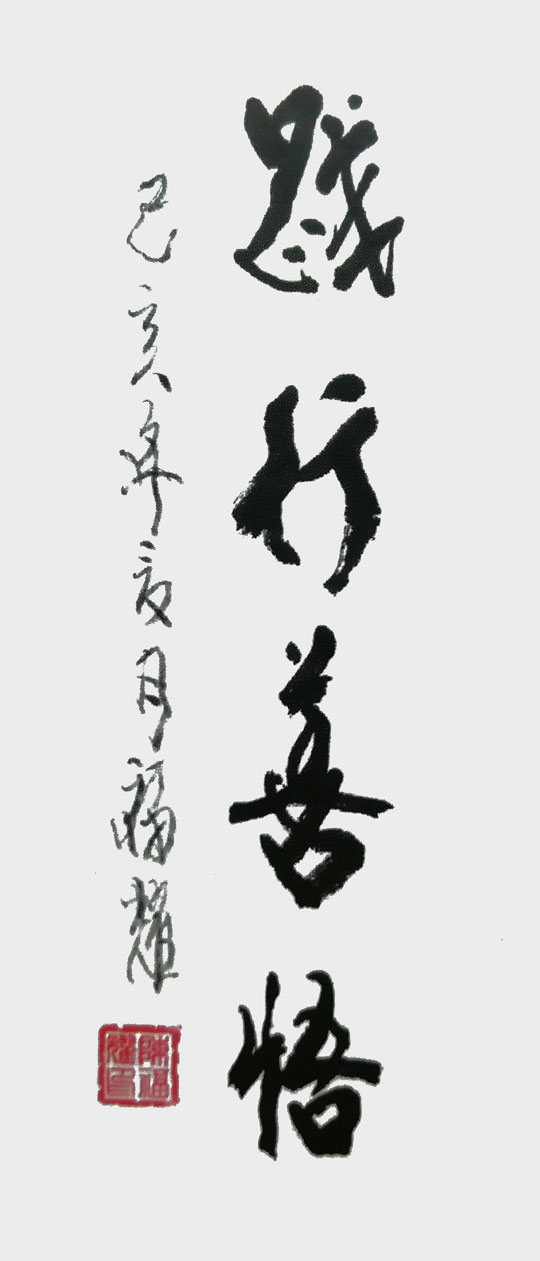 践行善悟
己亥年亥月福耀
陳福耀印